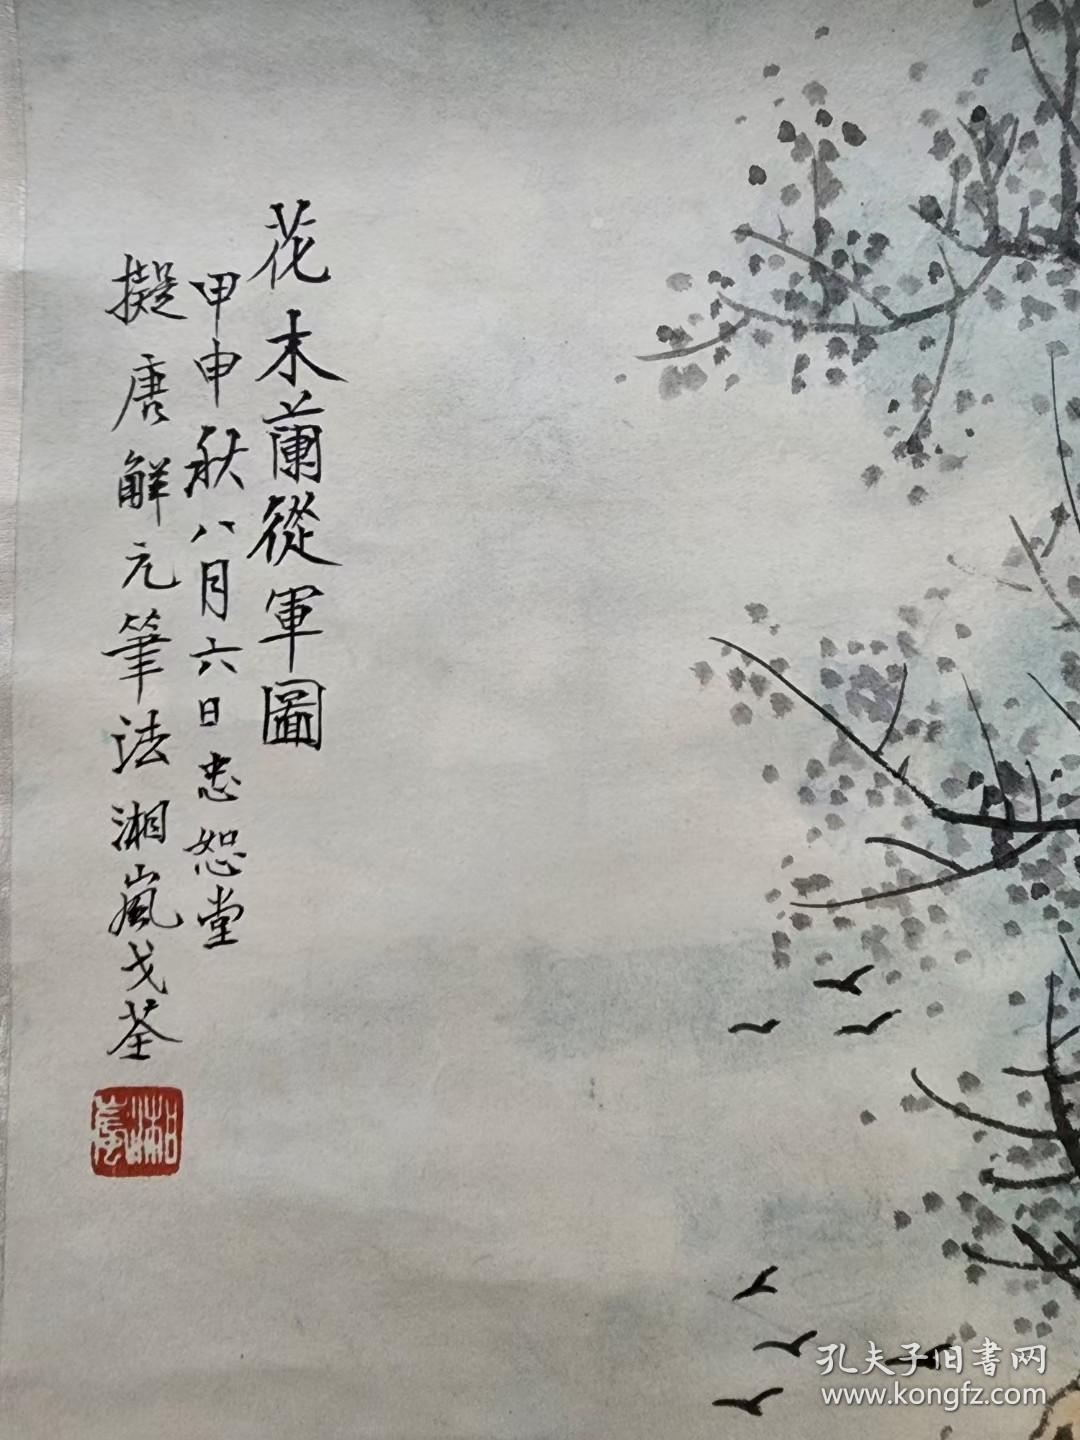 花木蘭從軍圖
甲申秋八月六日忠恕堂
擬唐解元筆法湘嵐戈荃
湘嵐
孔夫子旧書网
www.kongfz.com